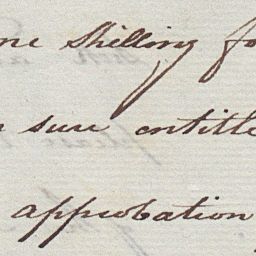 one shilling fo
sure entitle
approbation